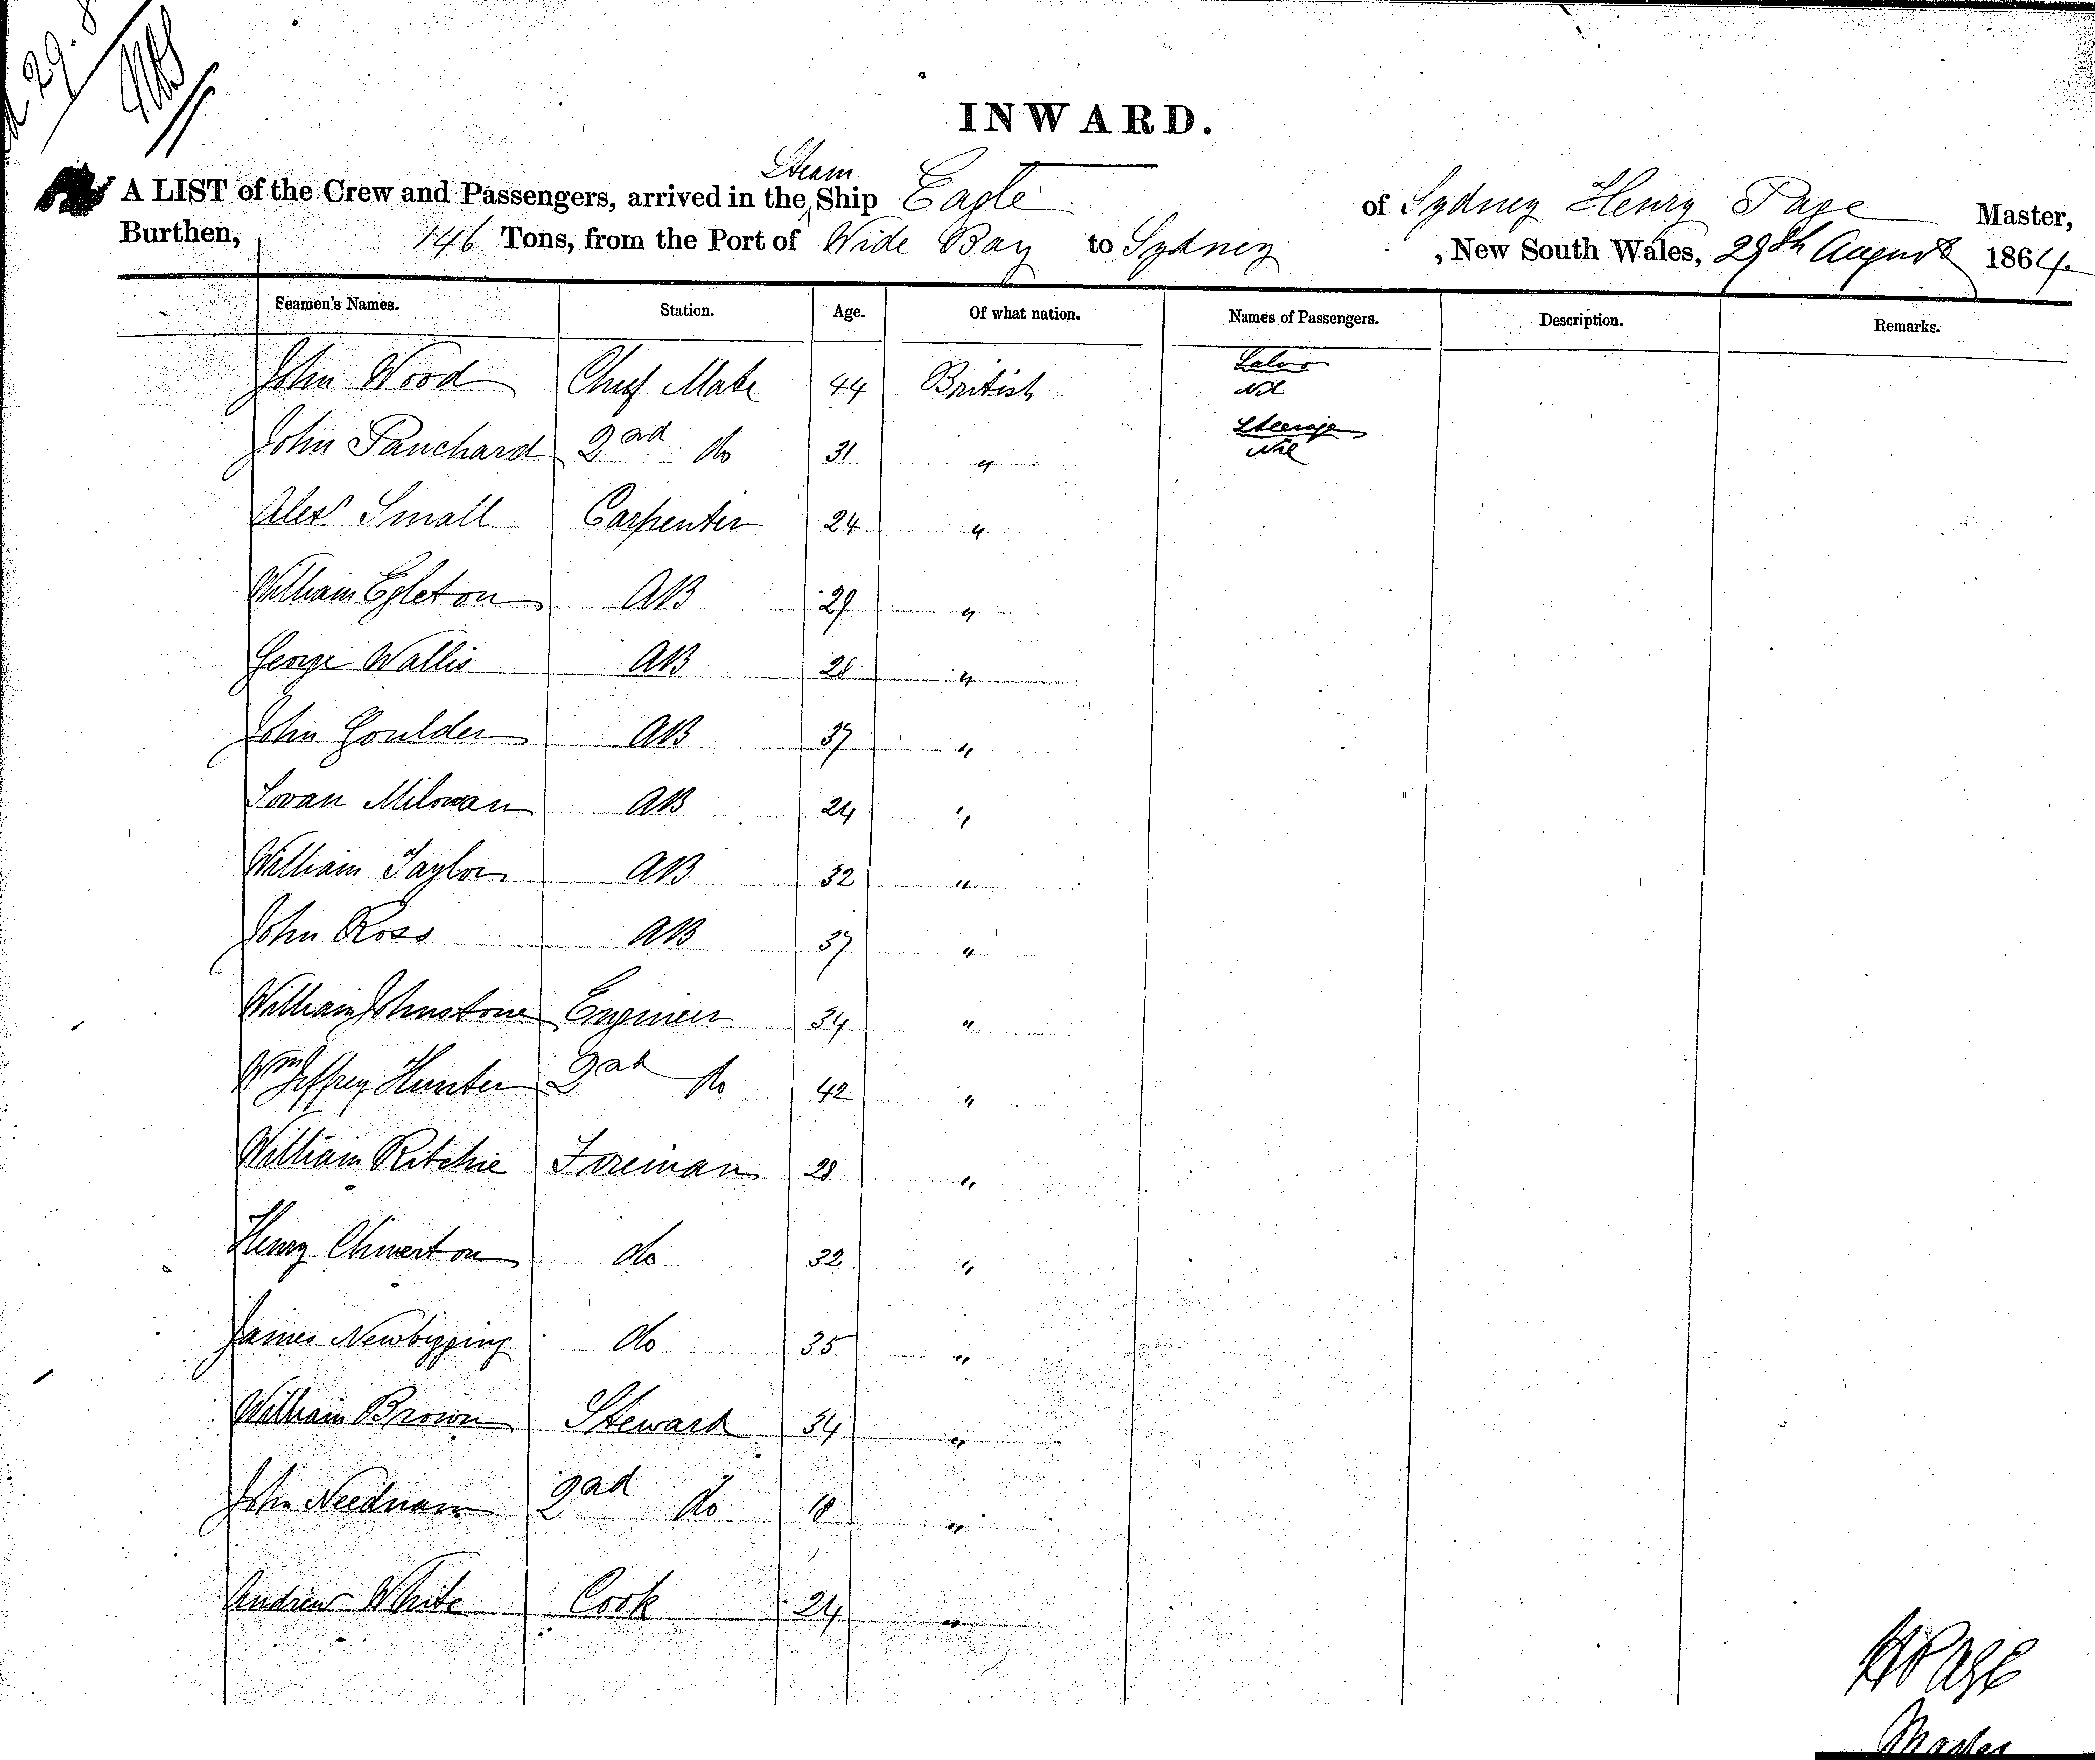 29.8
INWARD.
Steam
A LIST of the Crew and Passengers, arrived in the Ship Eagle of Sydney Henry Page Master,
Burthen, 146 Tons, from the Port of Wide Bay to Sydney , New South Wales, 29th August 1864.
Seamen's Names. Station. Age. Of what nation. Names of Passengers. Description. Remarks.
John Wood Chief Mate 44 British Saloon
Nil
John Panchard 2nd do 31 " Steerage
Nil
Alexr Small Carpenter 24 "
William Egleton AB 29 "
George Wallis AB 28 "
John Goulder AB 37 "
Milowan AB 24 "
William Taylor AB 32 "
John Ross AB 37 "
William Johnstone Engineer 34 "
Wm Jeffrey Hunter 2nd do 42 "
William Ritchie Foreman 28 "
Henry Chiverton do 32 "
James Newbigging do 35 "
William Brown Steward 34 "
John Neednam 2nd do 18 "
Andrew White Cook 24 "
H Page
Master